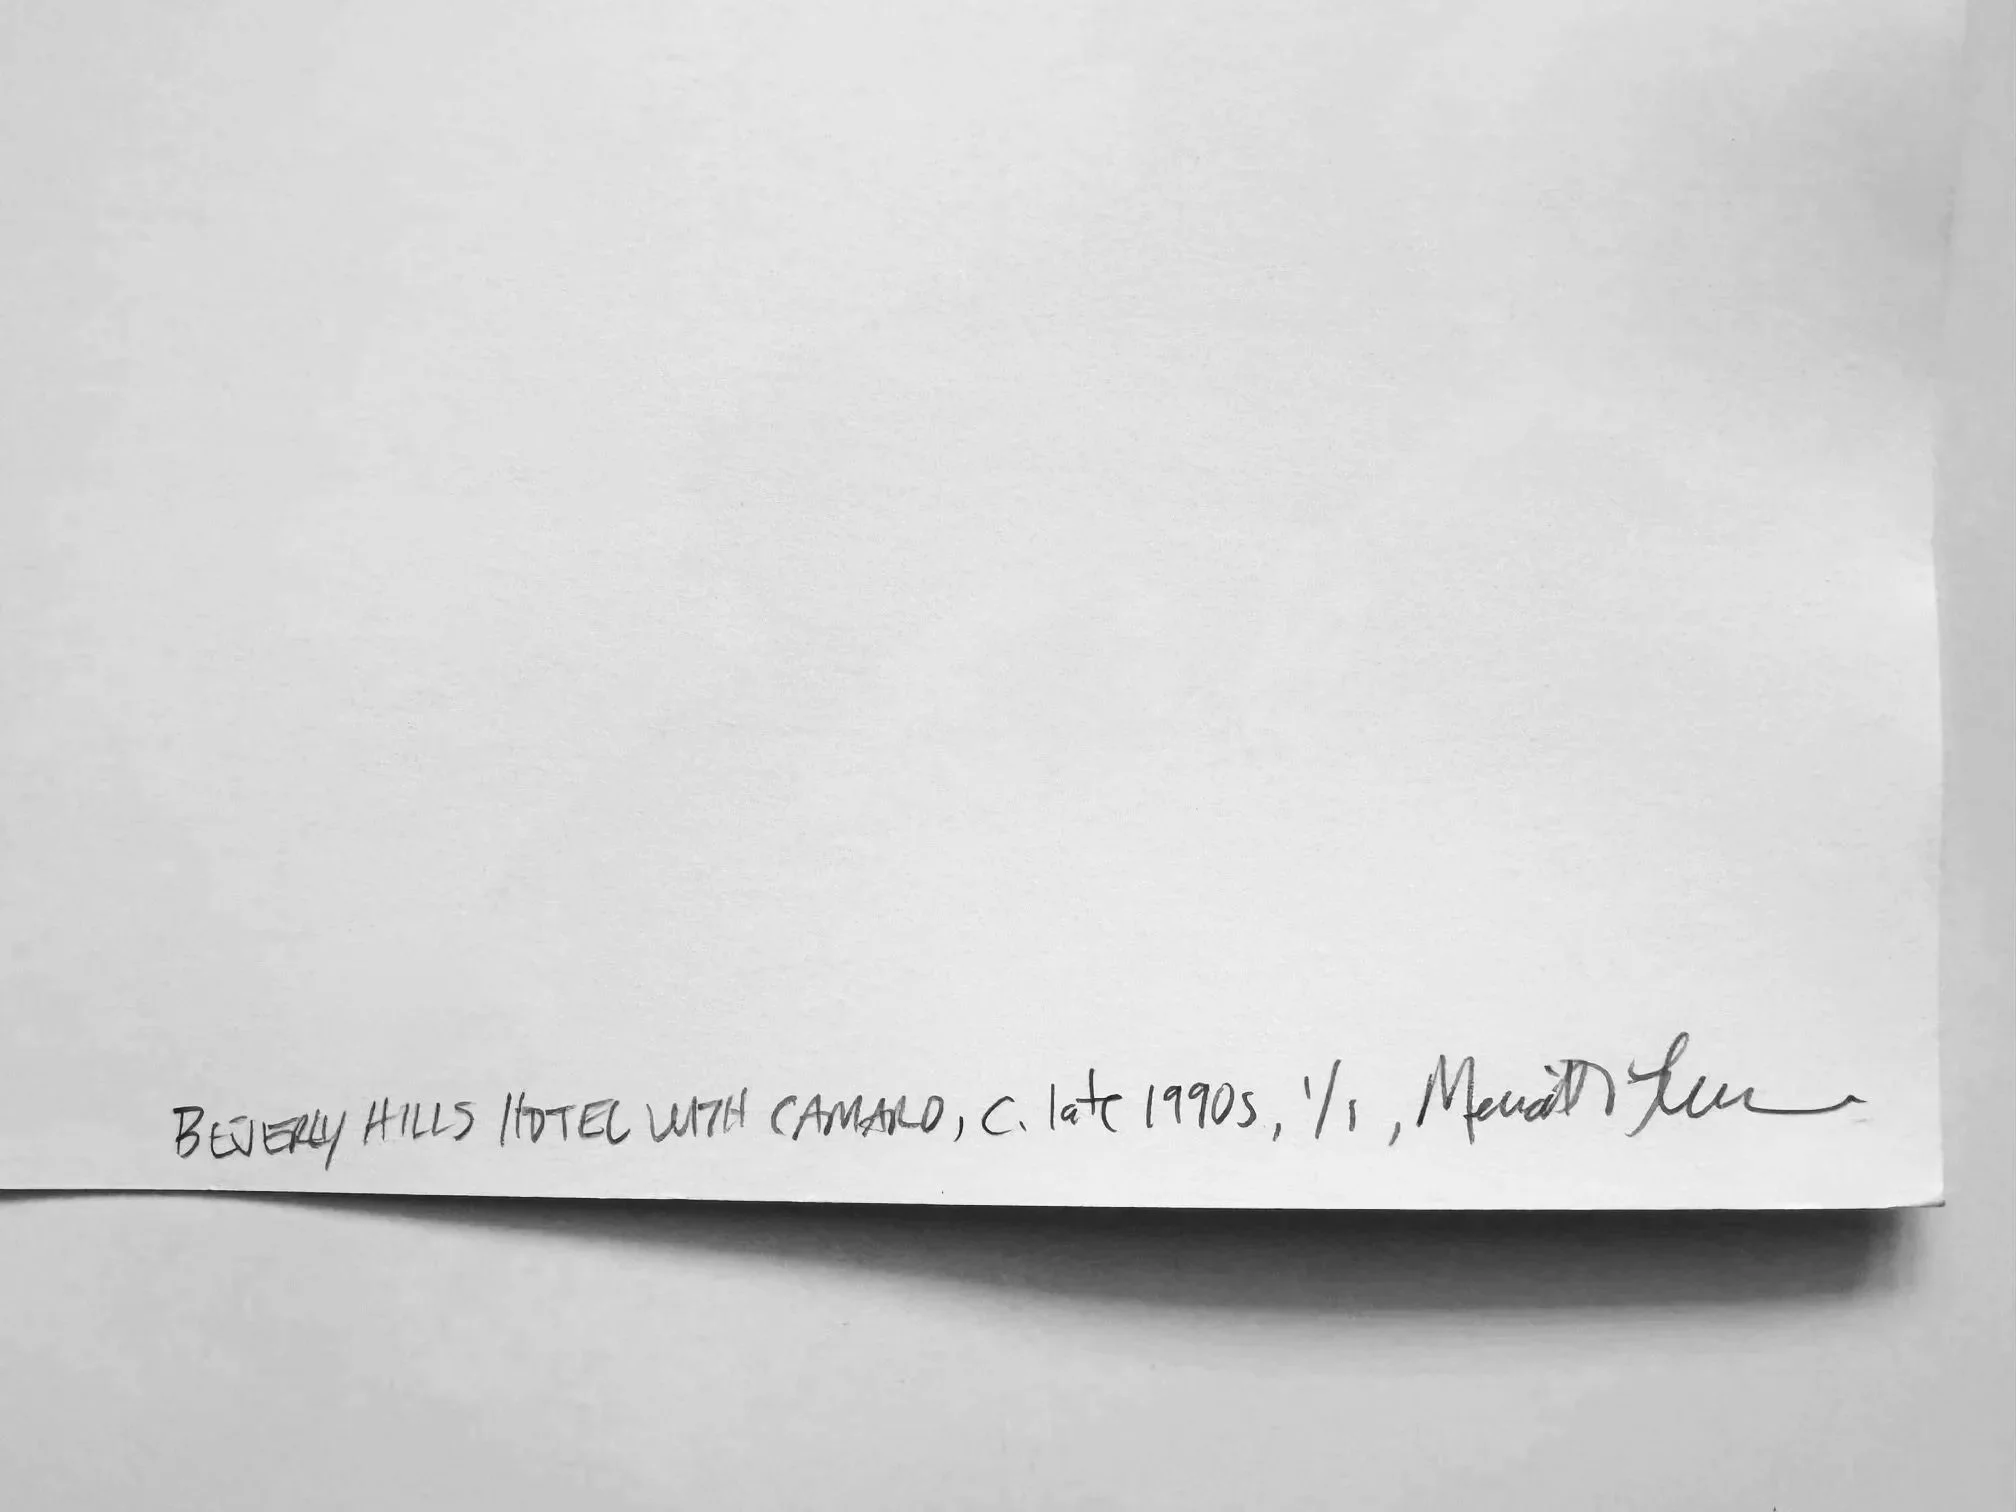 BEVERLY HILLS HOTEL WITH CAMARO, c. late 1990s, 1/1, Merritt